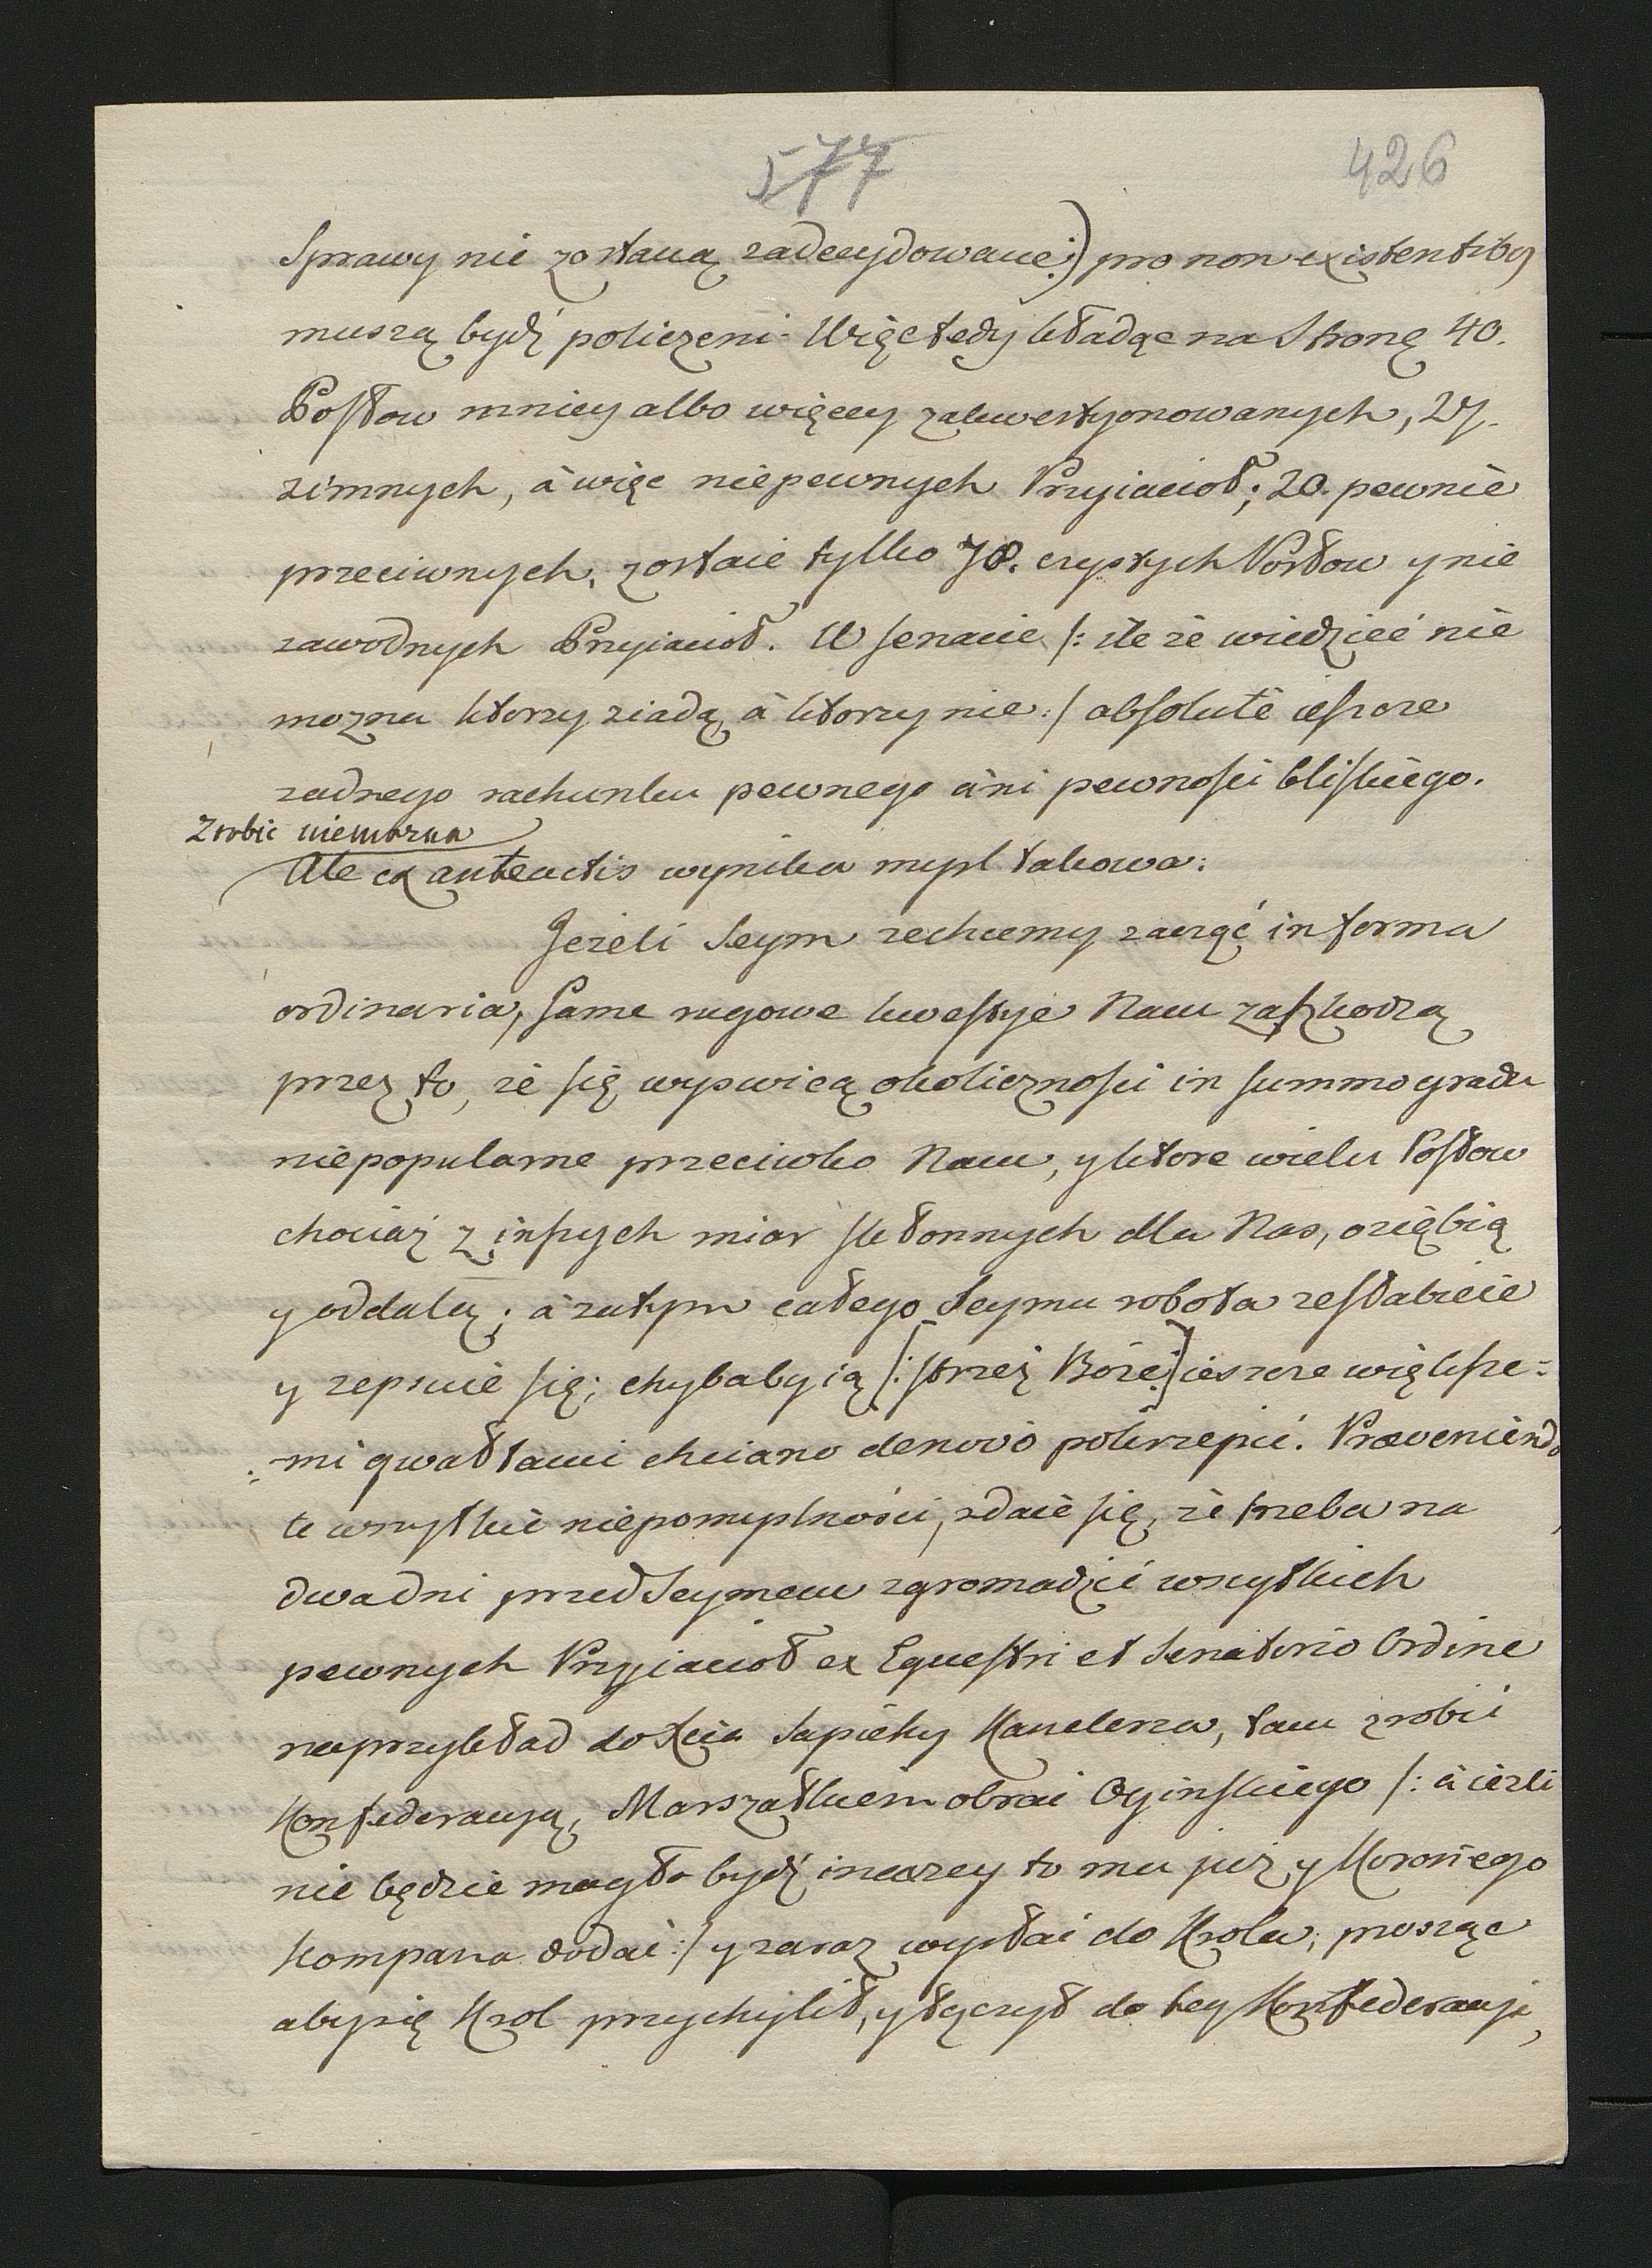 577
426
Sprawy nie zostaną zadecydowane:) pro non existentibg
muszą bydź policzeni. Więc tedy kładąc na Stronę 40.
Posłow mniey albo więcey zakwestyonowanych, 27.
zimnych, à więc niepewnych Przyiacioł; 20. pewnie
przeciwnych, zostaie tylko 78. czystych Posłow y nie
zawodnych Przyiacioł. W senacie /: ile że wiedzieć nie
mozna ktorzy ziadą à ktorzy nie :/ absolutè ieszcze
zadnego rachunku pewnego àni pewnosci bliskiego.
Zrobic niemozna
Ale ex anteactis wynika mysl takowa:
Jeżeli Seym zechcemy zacząć in forma
ordinaria, same rugowe kwestye Nam zaszkodzą
przez to, że się wyswicą okolicznosci in summo gradu
niepopularne przeciwko Nam, y ktore wielu Posłow
chociaż z inszych miar skłonnych dla Nas, oziębią
y oddalą; à zatym całego Seymu robota zesłabieie
y zepsuie się; chybaby ią [: strzeż Boże :] ieszcze większe=
=mi gwałtami chciano denovo pokrzepić. Præveniendo
te wszystkie niepomyslności, zdaie się, że trzeba na
dwa dni przed Seymem zgromadzić wszystkich
pewnych Przyiacioł ex Equestri et Senatorio Ordine
naprzykład do Xcia Sapiehy Kanclerza, tam zrobić
Konfederacyą, Marszałkiem obrać Oginskiego /: à ieżli
nie będzie mogło bydź inaczey to mu już y Koroñego
Kompana dodać :/ y zaraz wysłać do Krola, prosząc
aby się Krol przychylił, y łączył do tey Konfederacyi,